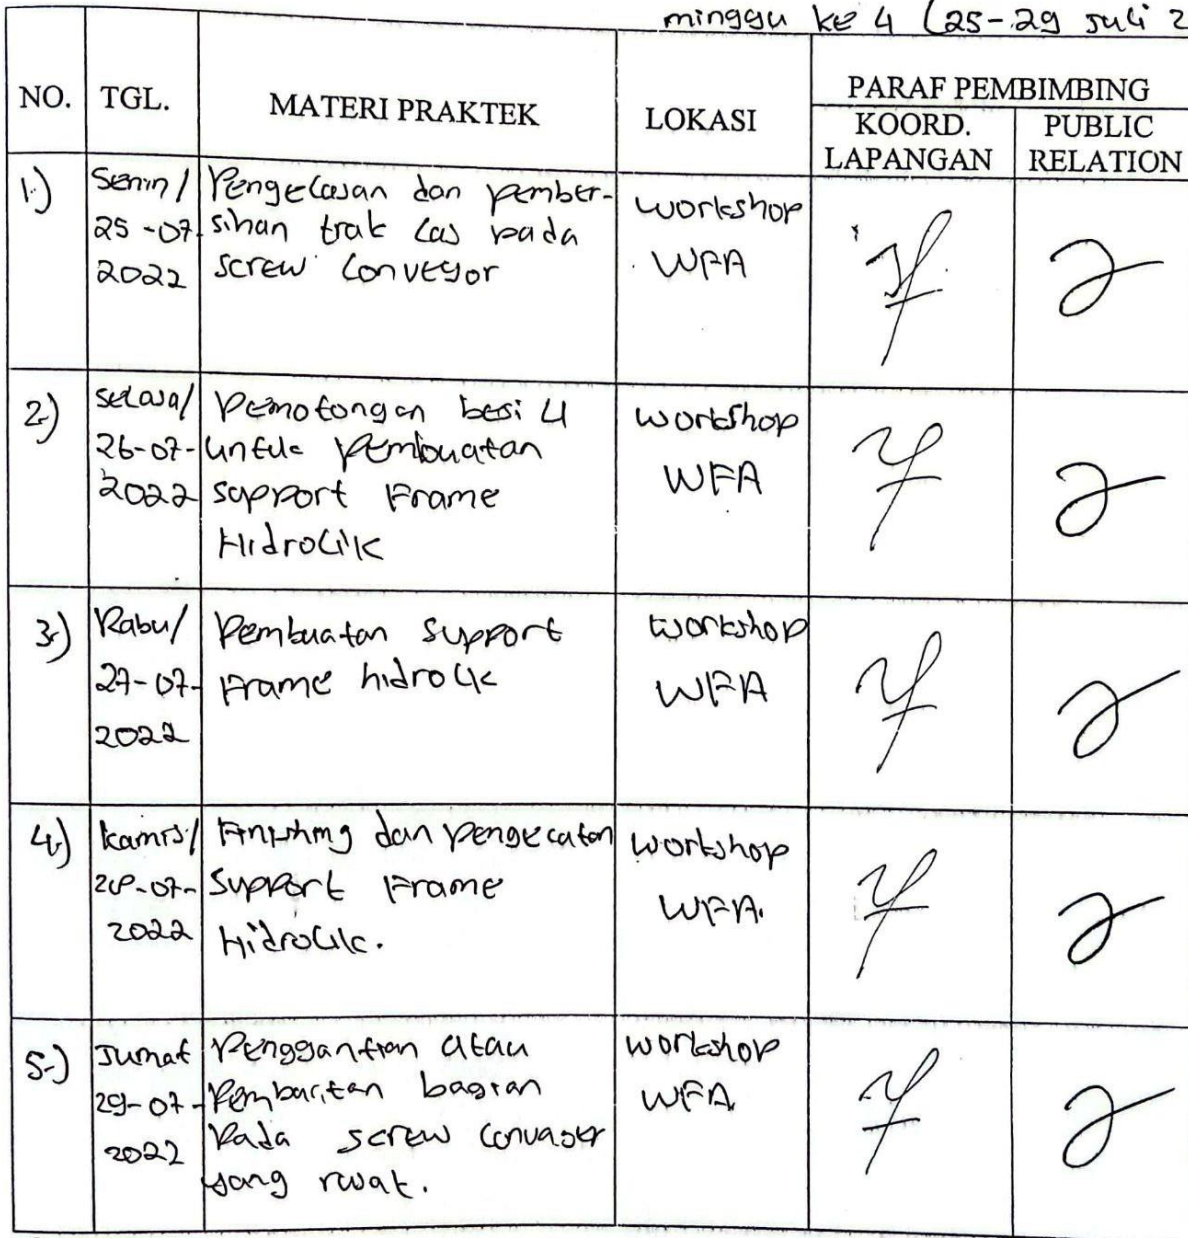 minggu ke 4 (25-29 Juli 2
NO. TGL. MATERI PRAKTEK LOKASI PARAF PEMBIMBING
KOORD. LAPANGAN PUBLIC RELATION
1.) Senin/ 25-07 2022
Pengelasan dan pember-
sihan trak las pada
screw conveyor
workshop
WFA
2.) Selasa/ 26-07- 2022
Pemotongan besi U
untuk pembuatan
support Frame
Hidrolik
workshop
WFA
3.) Rabu/ 27-07- 2022
Pembuatan support
Frame hidrolik
workshop
WFA
4.) kamis/ 28-07- 2022
Finishing dan pengecatan
support Frame
Hidrolik.
workshop
WFA.
5.) Jumat 29-07- 2022
Penggantian atau
Pada screw
yang rusak.
workshop
WFA